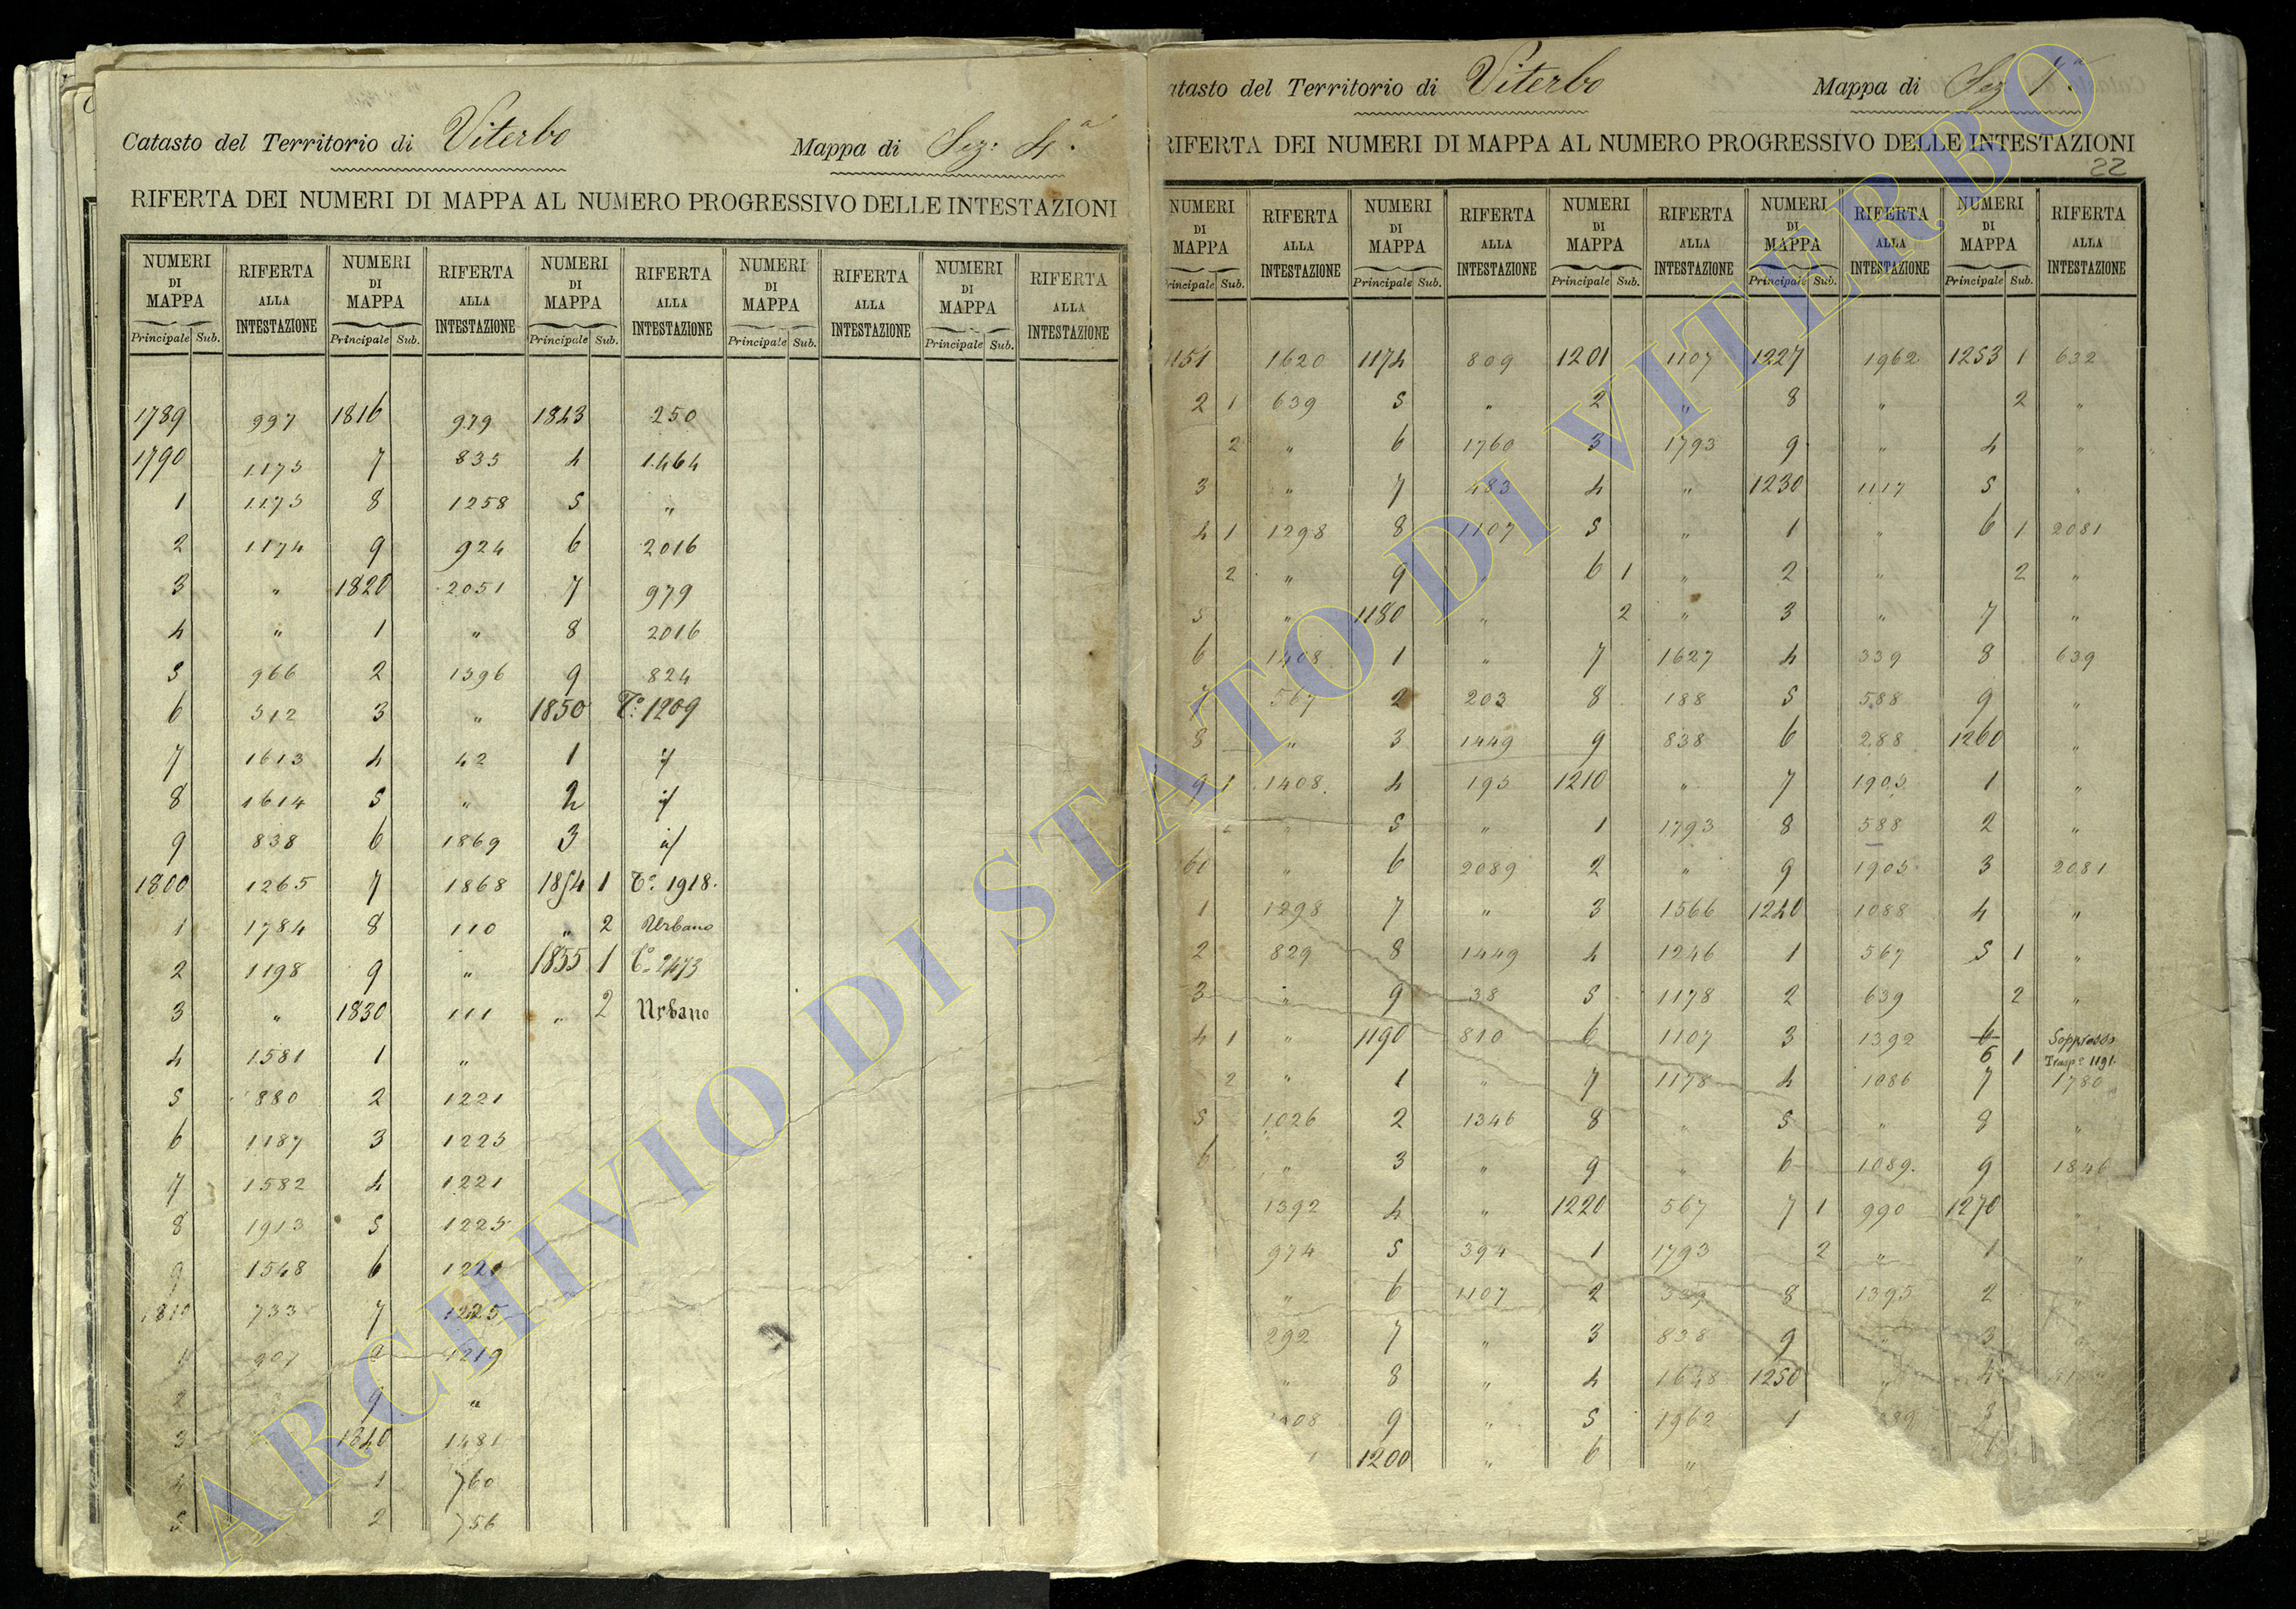 Catasto del Territorio di Viterbo Mappa di Sez: 4.a
RIFERTA DEI NUMERI DI MAPPA AL NUMERO PROGRESSIVO DELLE INTESTAZIONI
NUMERI DI MAPPA RIFERTA ALLA INTESTAZIONE NUMERI DI MAPPA RIFERTA ALLA INTESTAZIONE NUMERI DI MAPPA RIFERTA ALLA INTESTAZIONE NUMERI DI MAPPA RIFERTA ALLA INTESTAZIONE NUMERI DI MAPPA RIFERTA ALLA INTESTAZIONE
Principale Sub. Principale Sub. Principale Sub. Principale Sub. Principale Sub.
1789 997 1816 979 1843 250
1790 1173 7 835 4 1464
1 1173 8 1258 5 "
2 1174 9 924 6 2016
3 " 1820 2051 7 979
4 " 1 " 8 2016
5 966 2 1396 9 824
6 312 3 " 1850 T.o 1209
7 1613 4 42 1 "
8 1614 5 " 2 "
9 838 6 1869 3 "
1800 1265 7 1868 1854 1 T.o 1918.
1 1784 8 110 " 2 Urbano
2 1198 9 " 1855 1 T.o 2473
3 " 1830 111 " 2 Urbano
4 1581 1 "
5 880 2 1221
6 1187 3 1223
7 1582 4 1221
8 1913 5 1225
9 1548 6 1221
1810 733 7 1225
1 907 8 1219
2 9 "
3 1840 1481
4 1 760
5 2 756
Catasto del Territorio di Viterbo Mappa di Sez
RIFERTA DEI NUMERI DI MAPPA AL NUMERO PROGRESSIVO DELLE INTESTAZIONI
22
NUMERI DI MAPPA RIFERTA ALLA INTESTAZIONE NUMERI DI MAPPA RIFERTA ALLA INTESTAZIONE NUMERI DI MAPPA RIFERTA ALLA INTESTAZIONE NUMERI DI MAPPA RIFERTA ALLA INTESTAZIONE NUMERI DI MAPPA RIFERTA ALLA INTESTAZIONE
Principale Sub. Principale Sub. Principale Sub. Principale Sub. Principale Sub.
1151 1620 1174 809 1201 1107 1227 1962 1253 1 632
2 1 639 5 " 2 " 8 " 2 "
2 " 6 1760 3 1793 9 " 4 "
3 " 7 483 4 " 1230 1117 5 "
4 1 1298 8 1107 5 " 1 " 6 1 2081
2 " 9 " 6 1 " 2 " 2 "
5 " 1180 " 2 " 3 " 7 "
6 1408 1 " 7 1627 4 339 8 639
7 567 2 203 8 188 5 588 9 "
8 " 3 1449 9 838 6 288 1260 "
9 1 1408 4 193 1210 " 7 1903 1 "
2 " 5 " 1 1793 8 588 2 "
60 " 6 2089 2 " 9 1903 3 2081
1 1298 7 " 3 1566 1240 1088 4 "
2 829 8 1449 4 1246 1 567 5 1 "
3 " 9 38 5 1178 2 639 2 "
4 1 " 1190 810 6 1107 3 1392 6 Soppresso
6 1 Trasp.o 1191.
2 " 1 " 7 1178 4 1086 7 1780
5 1026 2 1346 8 " 5 " 8 "
6 " 3 " 9 " 6 1089 9 1846
1392 4 " 1220 567 7 1 990 1270 "
974 5 394 1 1793 2 " 1 "
" 6 1107 2 8 1395 2 "
292 7 " 3 828 9 " 3 "
" 8 " 4 1648 1250 " 4
08 9 " 5 1962 1
1200 " 6 "
ARCHIVIO DI STATO DI VITERBO